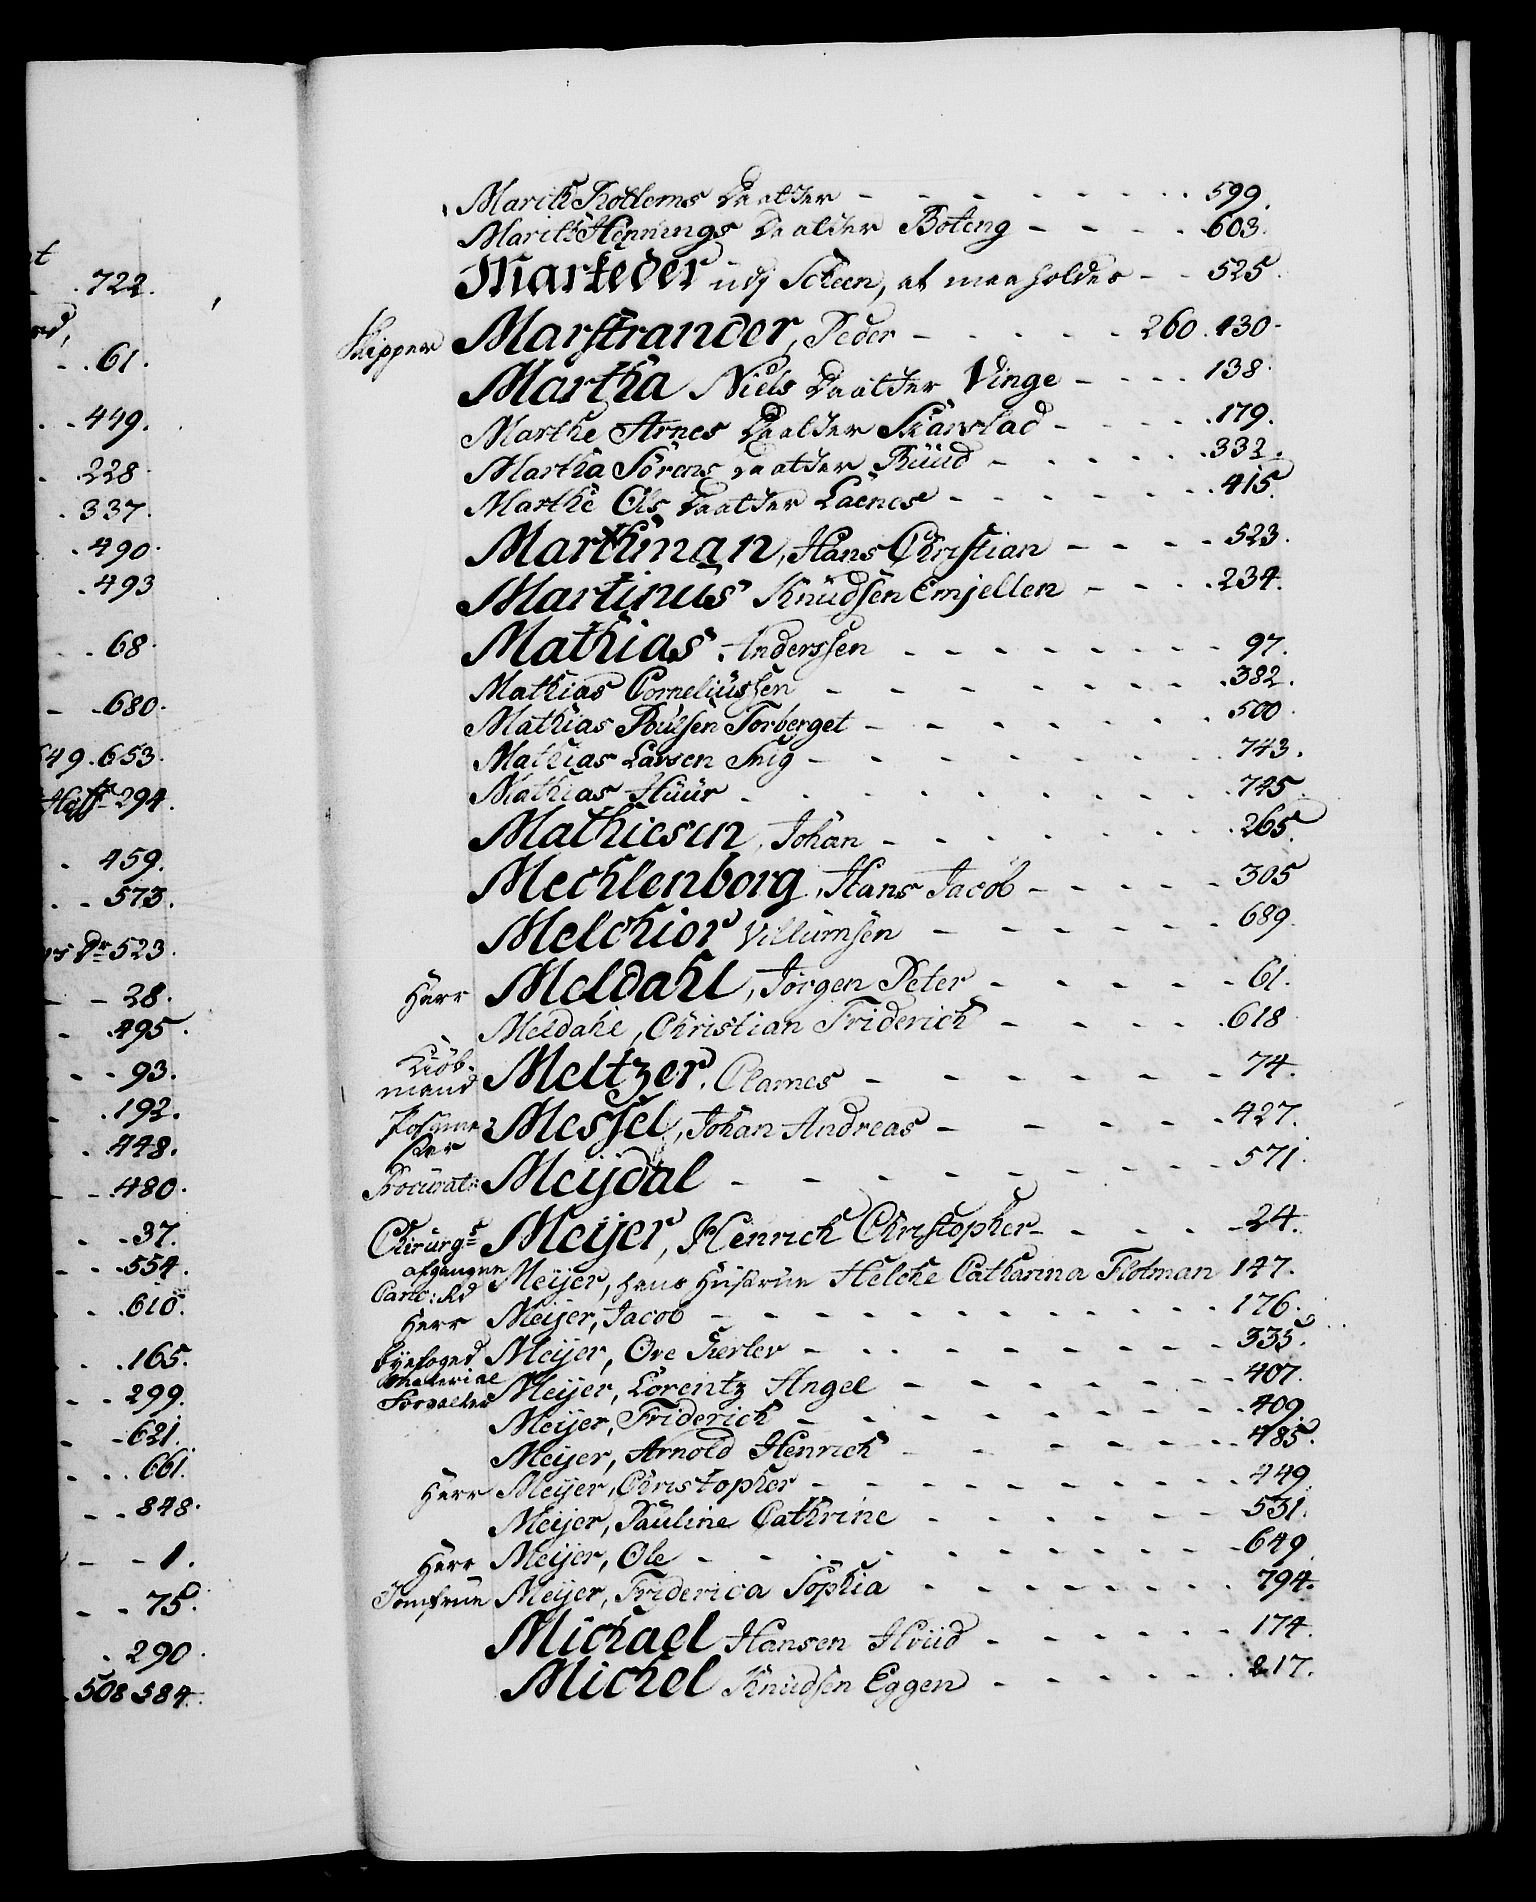 t
722.
rd,
61.
449.
228.
337.
490.
493
68.
680.
649.653.
294.
459.
573.
523.
28.
495.
93.
192.
448.
480.
37.
554.
610.
165.
299.
621.
661.
848.
1.
75.
290.
508 584.
Marith Daatter 599.
Marith Hennings Daatter Boteng 603.
Markeder udj Scheen, at maa holdes 525.
Skipper Marstrander, Peder 260.430.
Martha Niels Daatter Vinge 138.
Marthe Arnes Daatter Skarstad 179.
Martha Sörens Daatter Ruud 332.
Marthe Ols Daatter Laenes 415.
Marthman, Hans Christian 523.
Martinus Knudsen Emjellen 234.
Mathias Anderssen 97.
Mathias Corneliussen 382.
Mathias Poulsen Torberget 500.
Mathias Larsen 743.
Mathias Huur 745.
Mathiesen, Johan 265.
Mechlenborg, Hans Jacob 305
Melchior Villumsen 689.
Herr Meldahl, Jörgen Peter 61.
Meldahl, Christian Friderich 618
Kiöb-
mand Meltzer, Clames 74.
Messel, Johan Andreas 427.
Procurat: Meijdal 571.
Chirurg: Meijer, Henrich Christopher 24.
afgangne
Canc: Rd Meijer, hans Hustrue Helche Catharina Flotman 147.
Herr Meijer, Jacob 176.
Byefoged Meijer, Ove Fierlev 335.
Material
Forvalter Meijer, Lorentz Angel 407.
Meijer, Friderich 409.
Meijer, Arnold Henrich 485.
Herr Meijer, Christopher 449.
Meijer, Pauline Cathrine 531.
Herr Meijer, Ole 649.
Jomfrue Meijer, Friderica Sophia 794.
Michael Hansen Hviid 174.
Michel Knudsen Eggen 217.